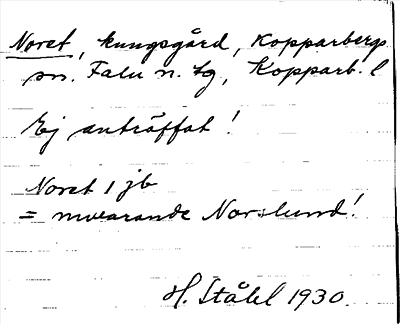 Noret, kungsgård, Kopparbergs
sn. Falu n. tg, Kopparb. l
Ej anträffat!
Noret 1 jb
= nuvarande Norslund!
H. Ståhl 1930.